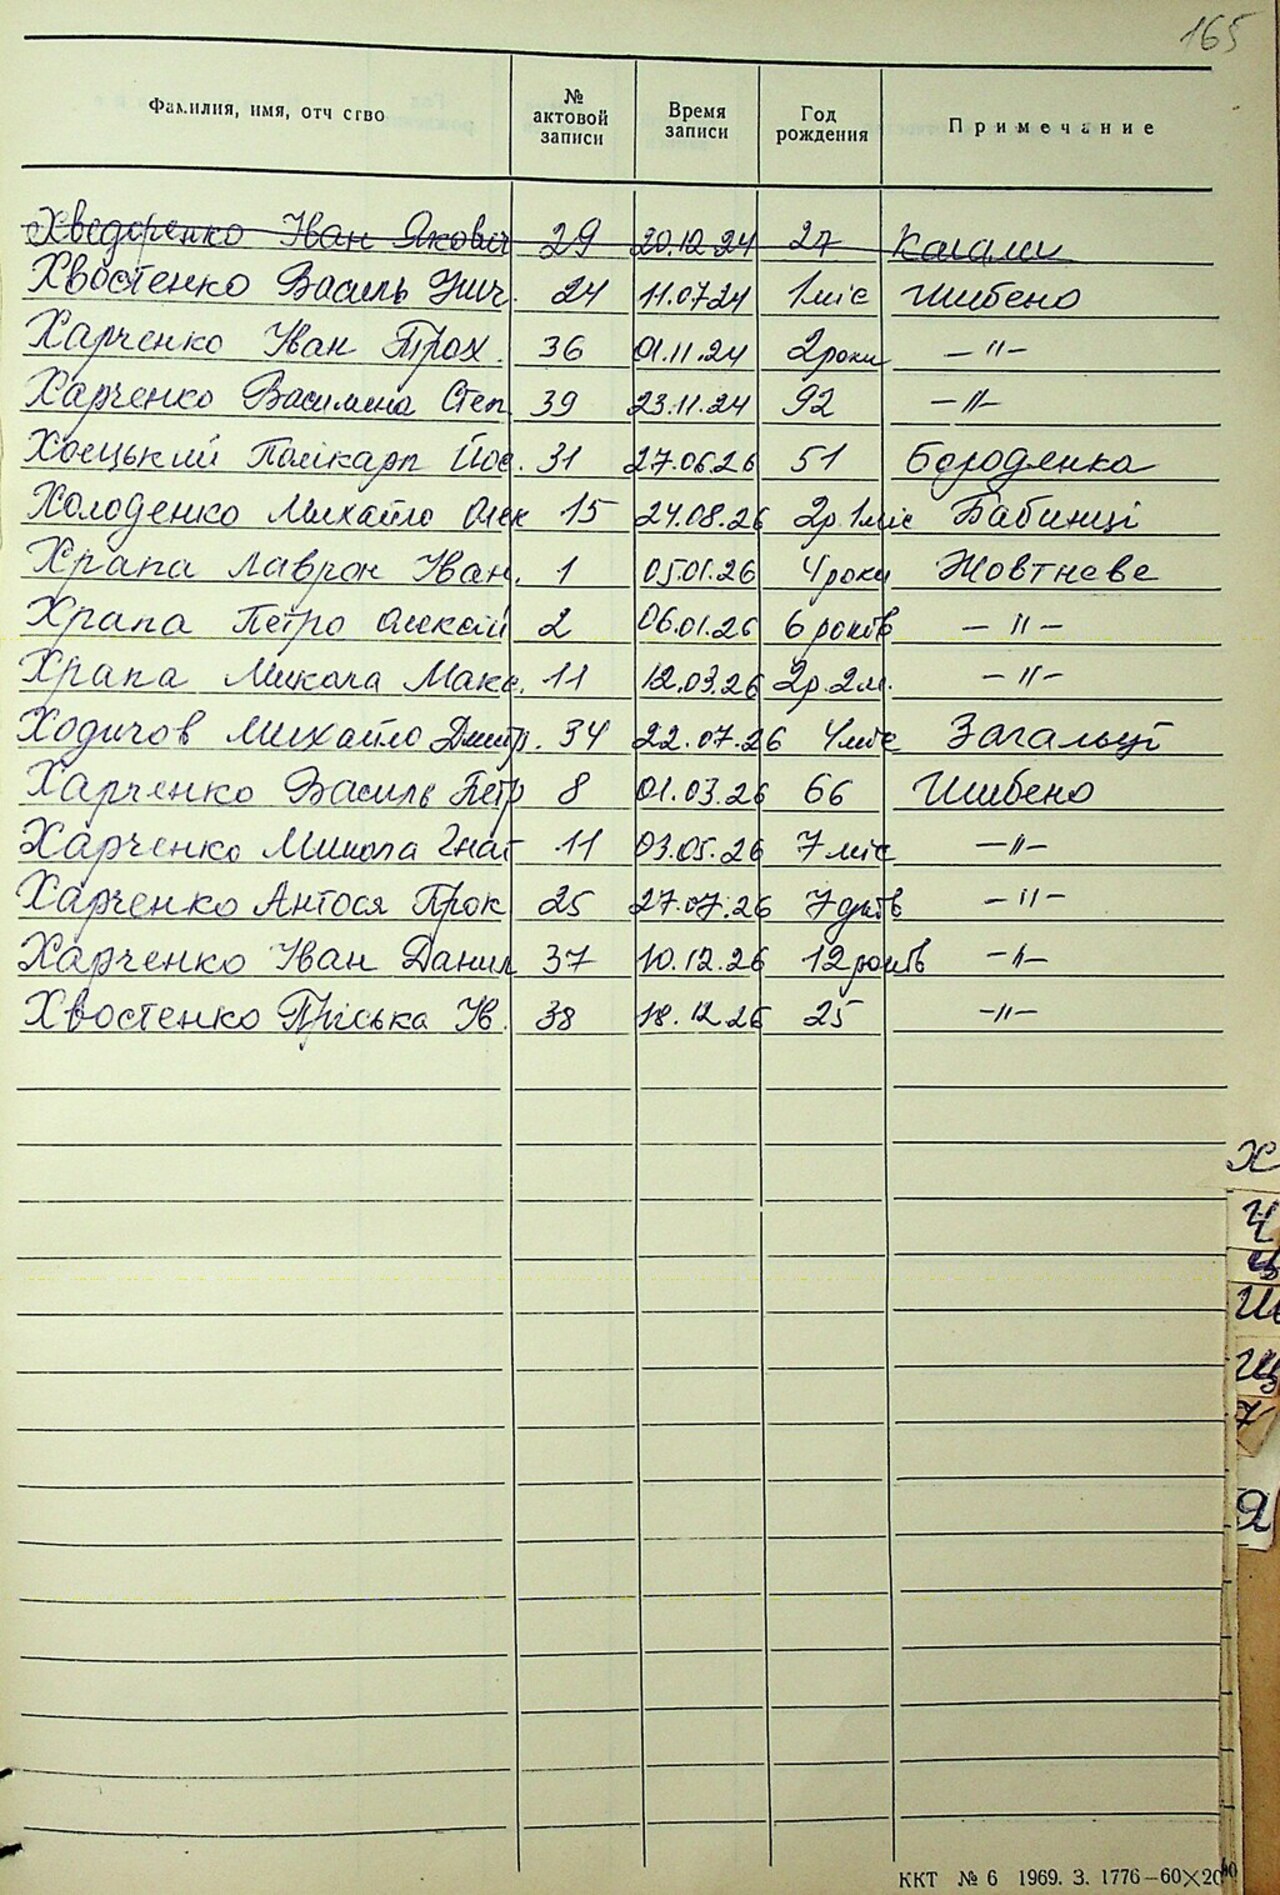 165
Фамилия, имя, отч ство № актовой записи Время записи Год рождения Примечание
Хведоренко Іван Якович 29 20.12.24 27 Кагали
Хвостенко Василь 24 11.07.24 1 міс Шибено
Харченко Іван Трох. 36 01.11.24 2 роки –〃–
Харченко Василина Степ 39 23.11.24 92 –〃–
Хоецький Полікарп Йос. 31 27.06.26 51 Бородянка
Холоденко Михайло Олек 15 24.08.26 2р. 1міс Бабинці
Храпа Лаврон Іван. 1 05.01.26 4 роки Жовтневе
Храпа Петро Олексій 2 06.01.26 6 років –〃–
Храпа Микола Макс. 11 12.03.26 2р. 2м. –〃–
Ходичов Михайло Дмитр. 34 22.07.26 4 міс Загальці
Харченко Василь Петр 8 01.03.26 66 Шибено
Харченко Микола Гнат 11 03.05.26 7 міс –〃–
Харченко Антося Прок 25 27.07.26 7 днів –〃–
Харченко Іван Данил 37 10.12.26 12 років –〃–
Хвостенко Пріська Ів. 38 18.12.26 25 –〃–
Х
Ч
Ц
Ш
Щ
Я
ККТ № 6 1969. З. 1776—60×20